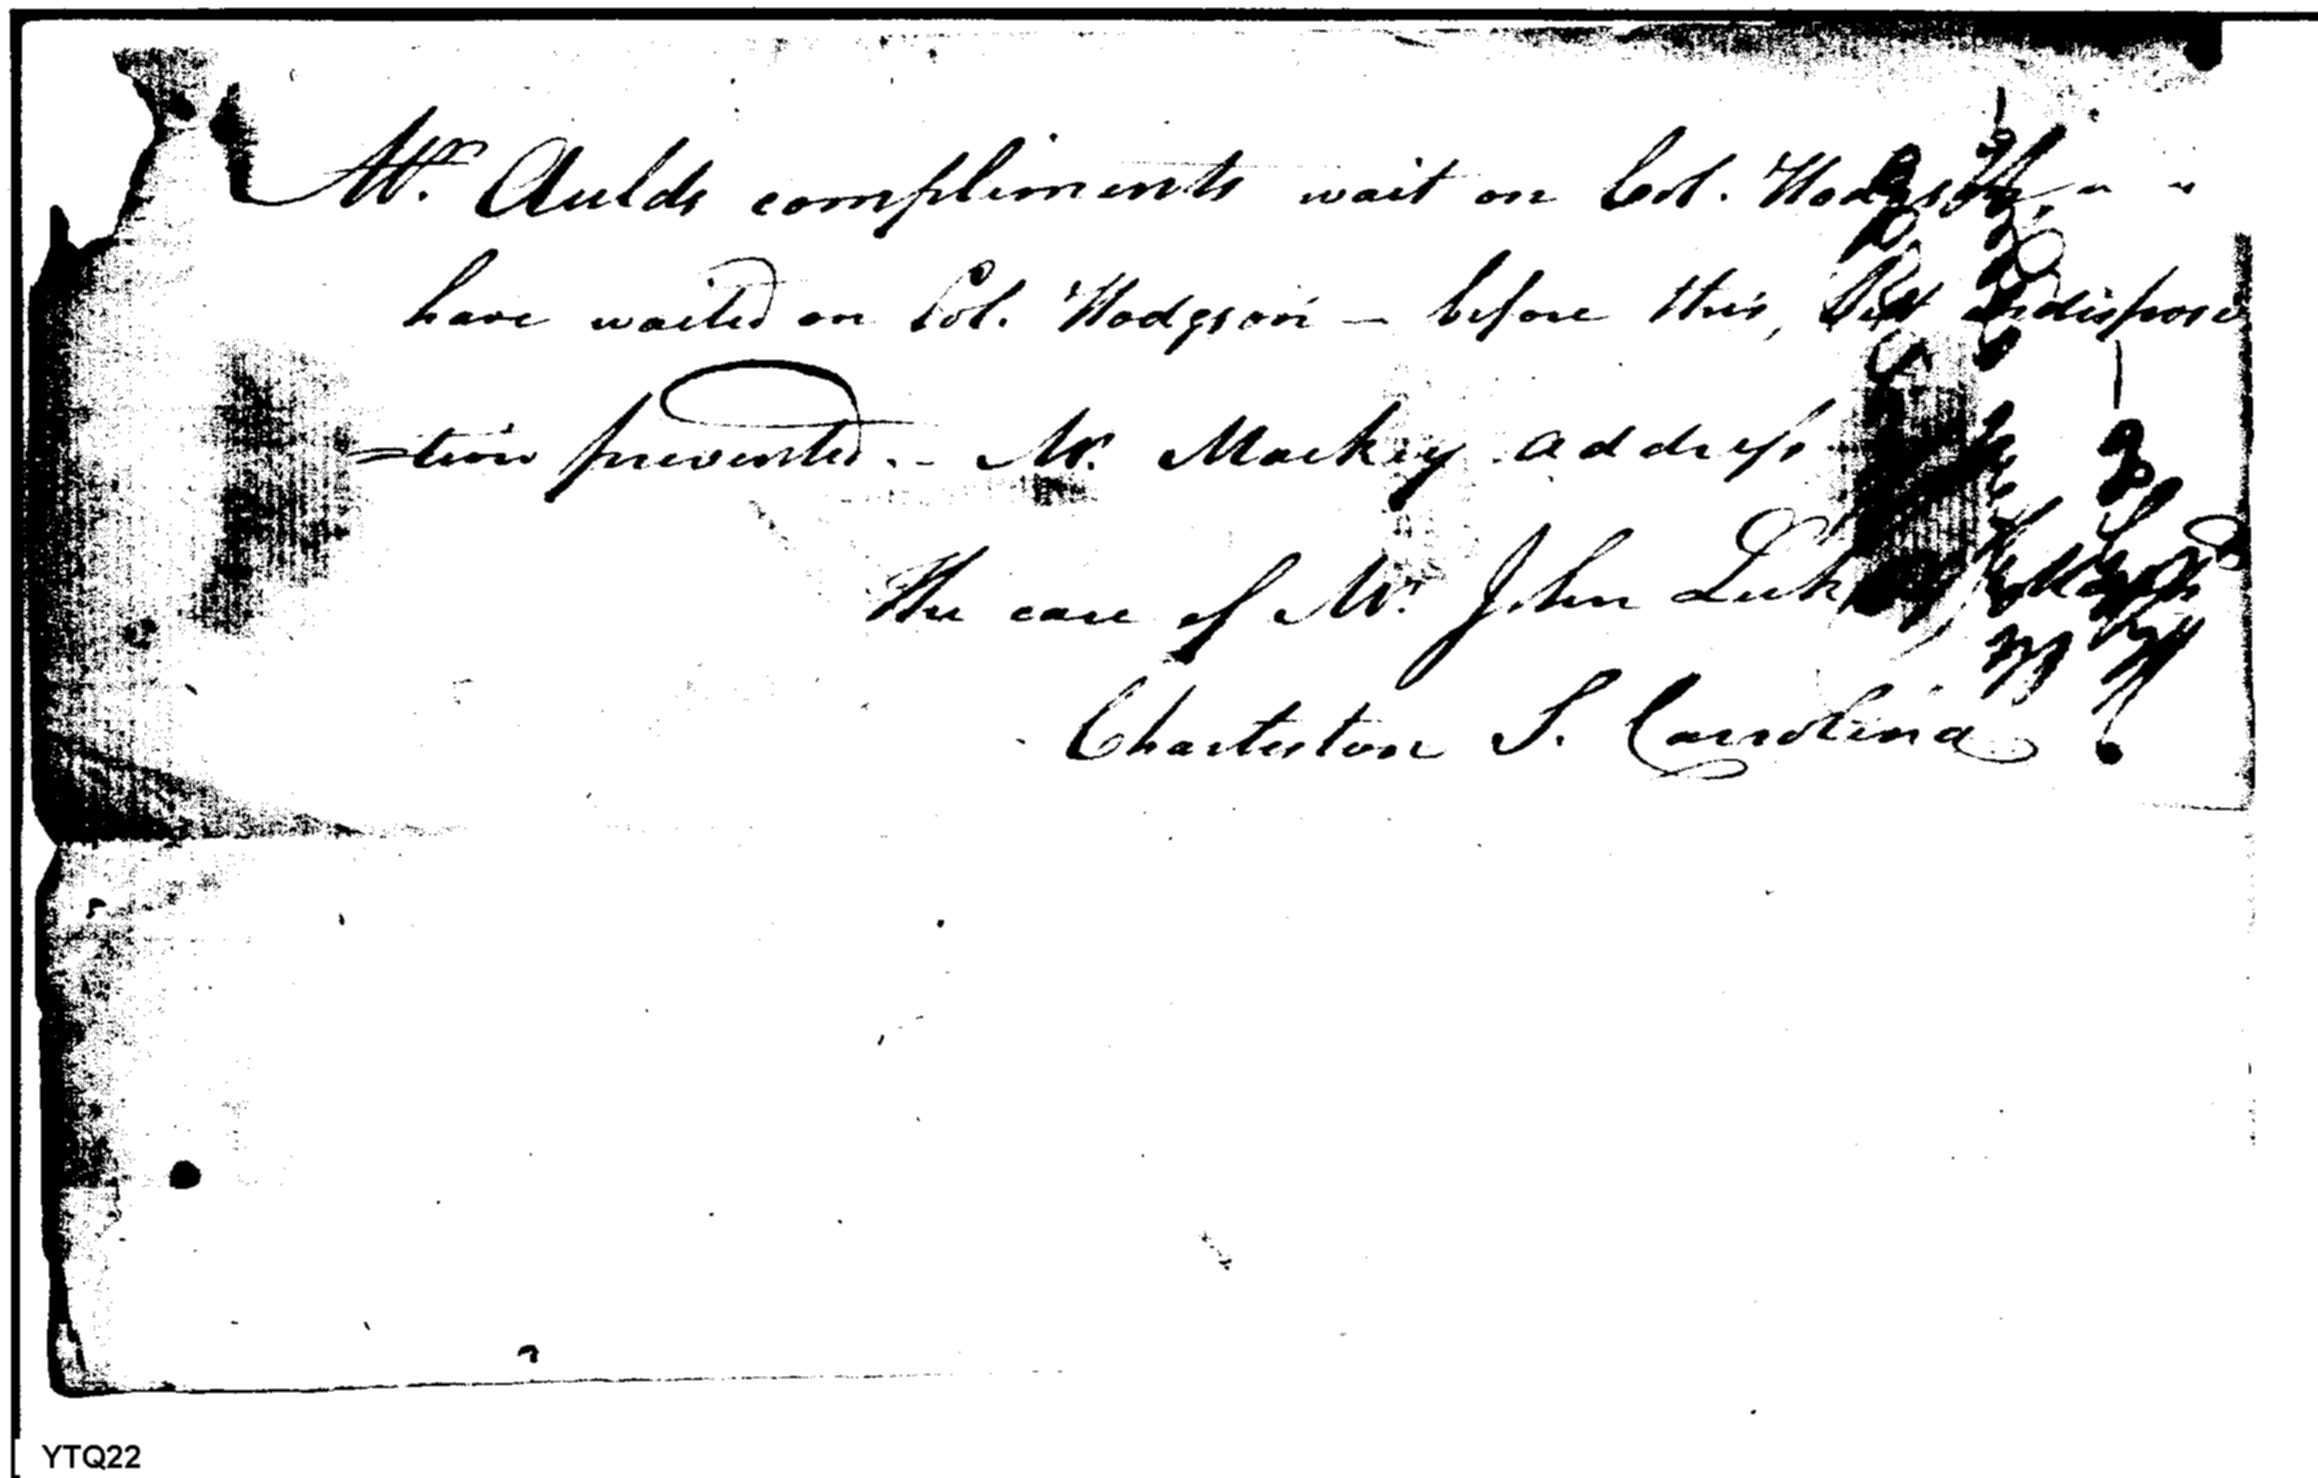 Mr. Aulds compliments wait on Col. Hodgson, " "
have waited on Col. Hodgson - before this, but indisposi
-tion prevented. - Mr. Mackey address
The care of Mr. John
Charleston S. Carolina
YTQ22